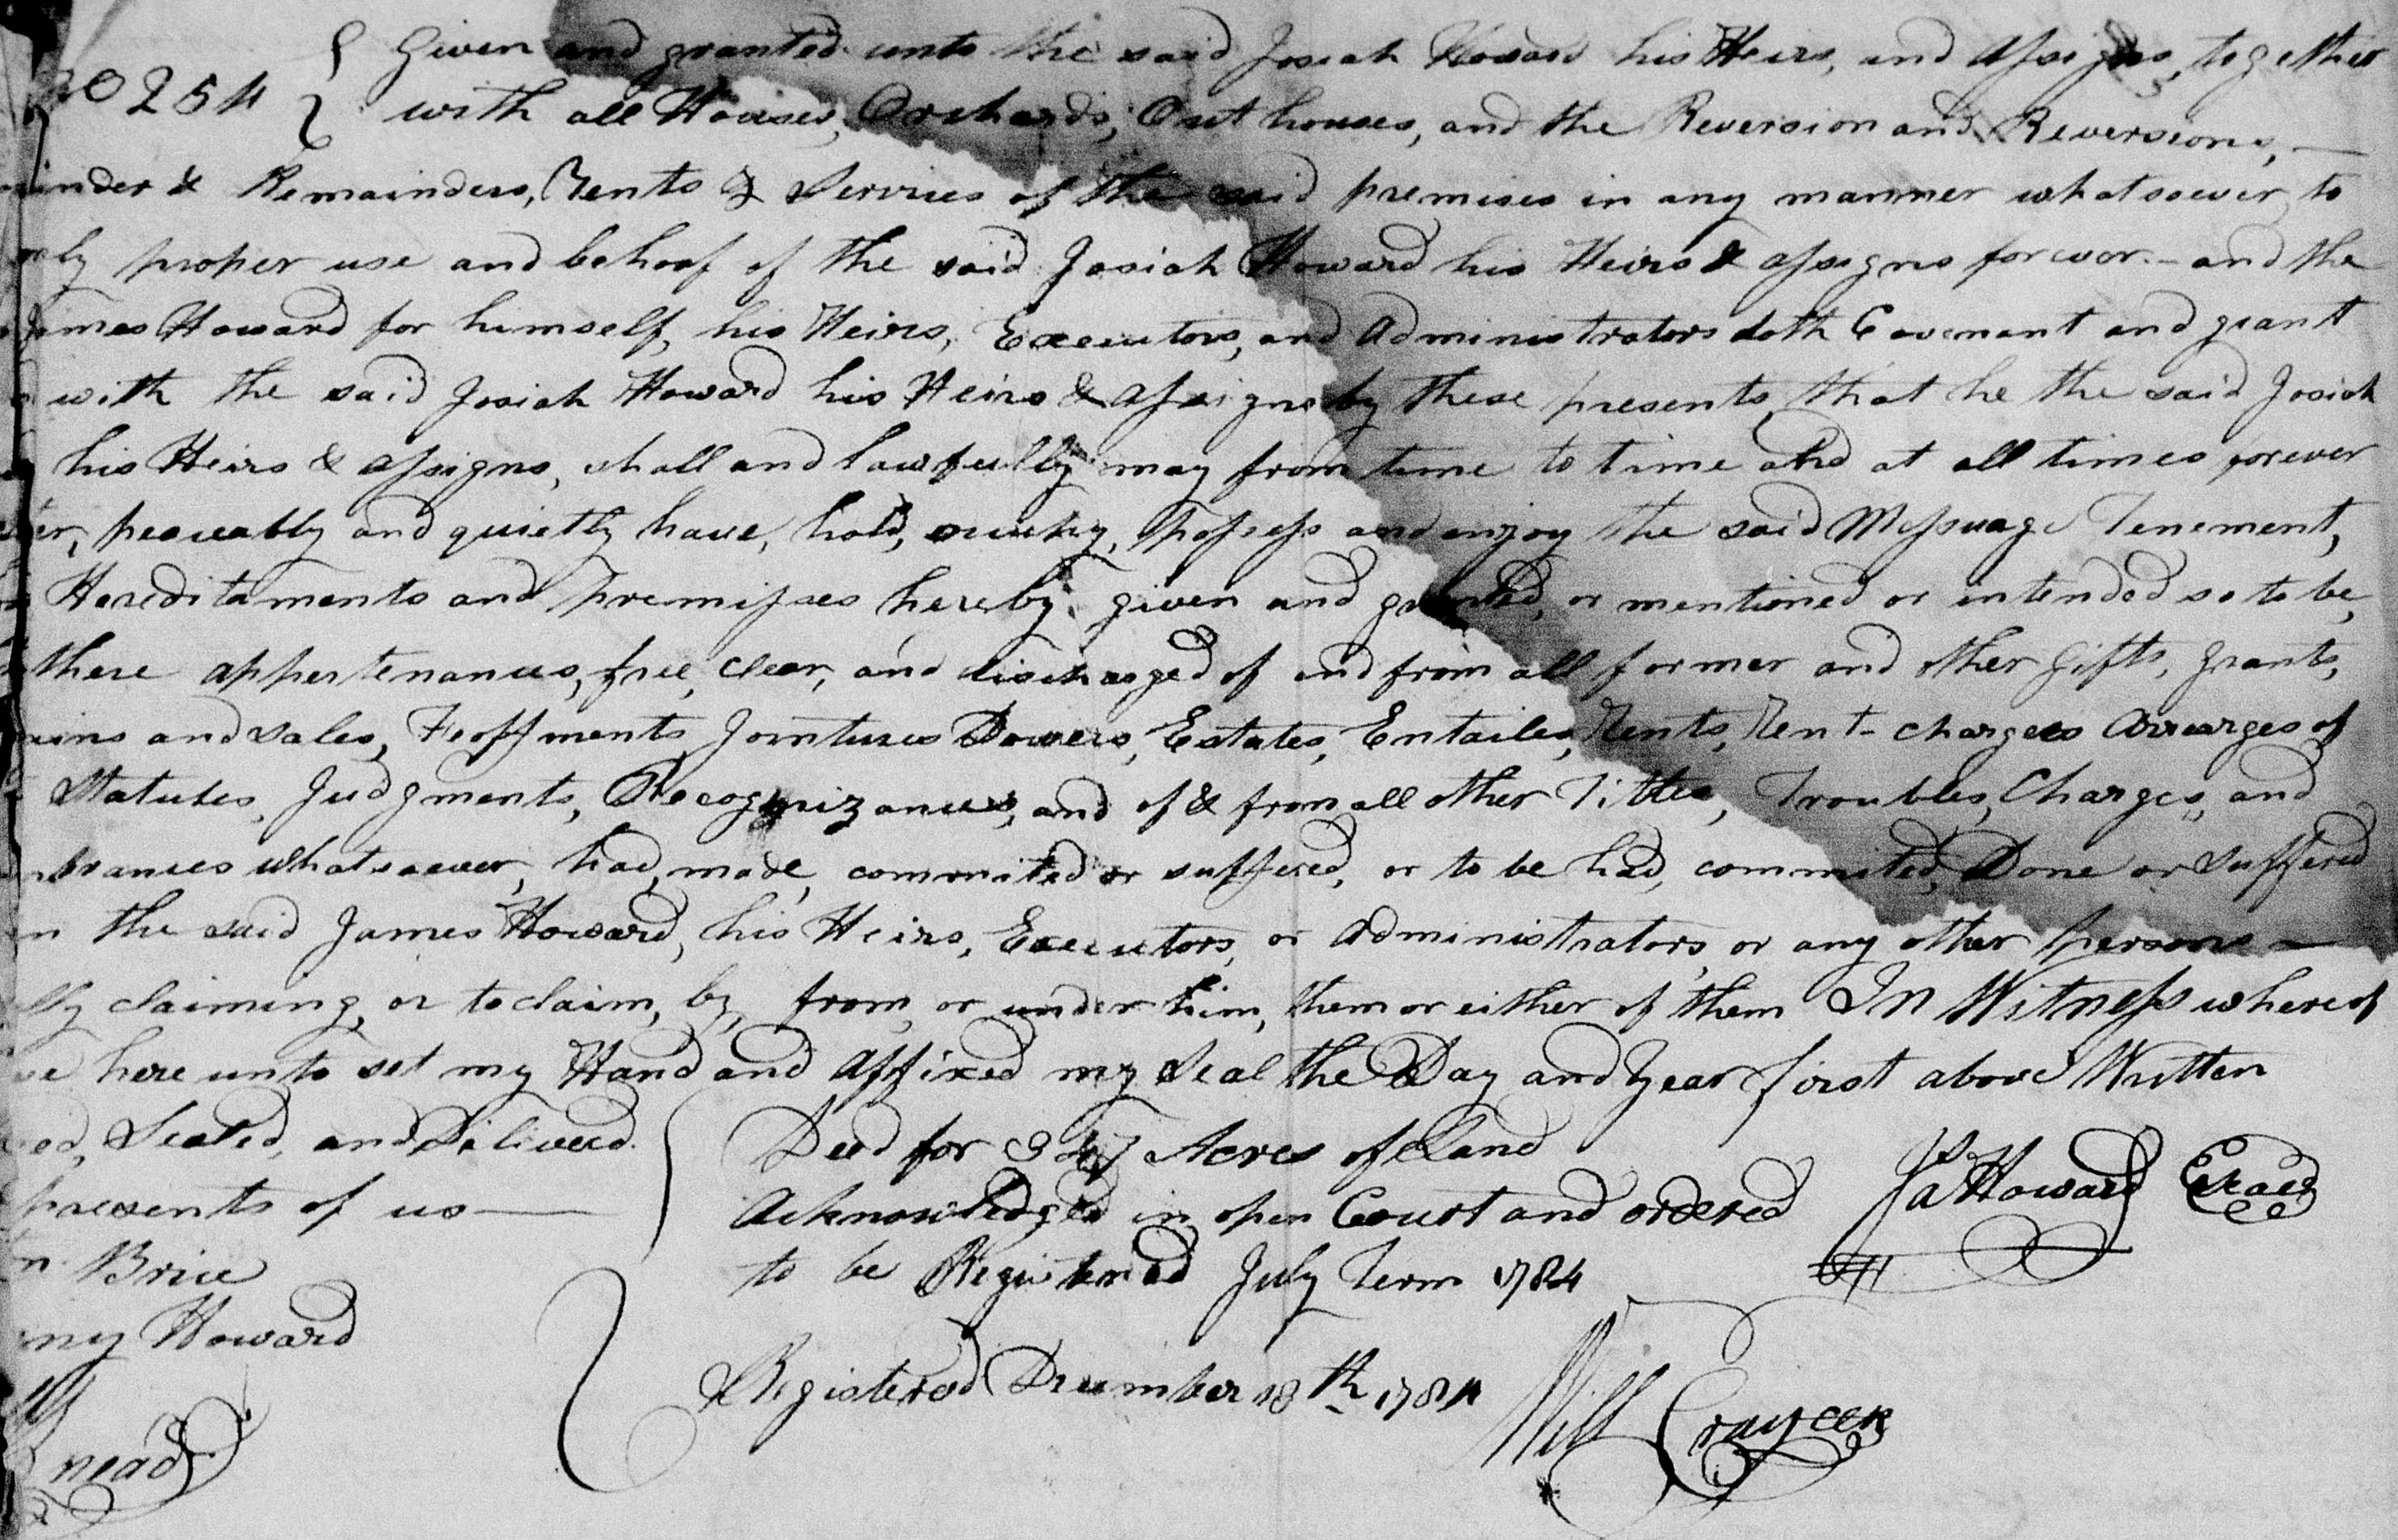 No 254 { Given and granted unto the said Josiah Howard his Heirs, and assigns, together
with all Houses, Orchards, Out houses, and the Reversion and Reversions, —
inder & Remainders, Rents & Services of the said premises in any manner whatsoever, to
nly proper use and behoof of the said Josiah Howard his Heirs & assigns forever. – and the
James Howard for himself, his Heirs, Executors, and administrators doth Covenant and grant
with the said Josiah Howard his Heirs & assigns by these presents, that he the said Josiah
his Heirs & assigns, shall and lawfully may from time to time and at all times forever
ter, peaceably and quietly have, hold, occupy, possess and enjoy the said Messuage Tenement,
Hereditaments and premisses hereby given and granted, or mentioned or intended so to be,
there appertenances, free, clear, and discharged of and from all former and other gifts, grants,
ains and sales, Feoffments Jointures Dowers, Estates, Entailes, Rents, Rent-charges arrearges of
Statutes, Judgments, Recognizances, and of & from all other Titles, Troubles, Charges, and
mbrances whatsoever, had, made, commited or suffered, or to be had, commited, Done or suffered
the said James Howard, his Heirs, Executors, or administrators, or any other persons —
lly claiming, or to claim, by, from, or under him, them or either of them In Witness whereof
ve here unto set my Hand and affixed my seal the Day and Year first above Written
ned, Sealed, and Deliverd.
presents of us —
n Brice
ny Howard
nead
Deed for 347 Acres of Land
Acknowledged in open Court and ordered
to be Registered July Term 1784
Ja Howard
Registered December 18th 1784
Will